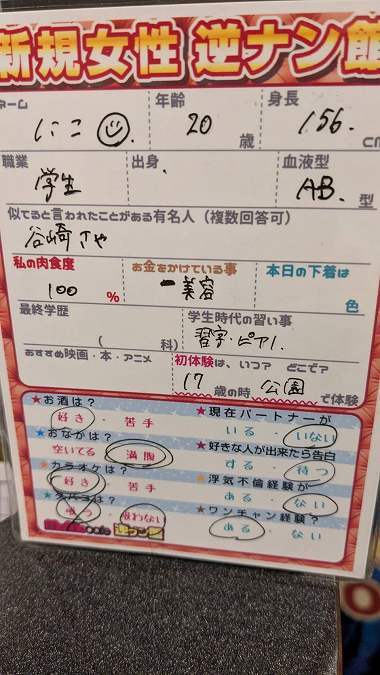 新規女性 逆ナン館
ネーム 年齢 身長
にこ 20 歳 156. cm
職業 出身 血液型
学生 AB. 型
似てると言われたことがある有名人（複数回答可）
谷崎さや
私の肉食度 お金をかけている事 本日の下着は
100 % 美容 色
最終学歴 学生時代の習い事
( 科) 習字・ピアノ
おすすめ映画・本・アニメ 初体験は、いつ？ どこで？
17 歳の時 公園 で体験
★お酒は？ ★現在パートナーが
好き・苦手 いる・いない
★おなかは？ ★好きな人が出来たら告白
空いてる 満腹 する・待つ
★カラオケは？ ★浮気不倫経験が
好き 苦手 ある・ない
★タバコは？ ★ワンチャン経験？
吸う・吸わない ある・ない
逆ナン館